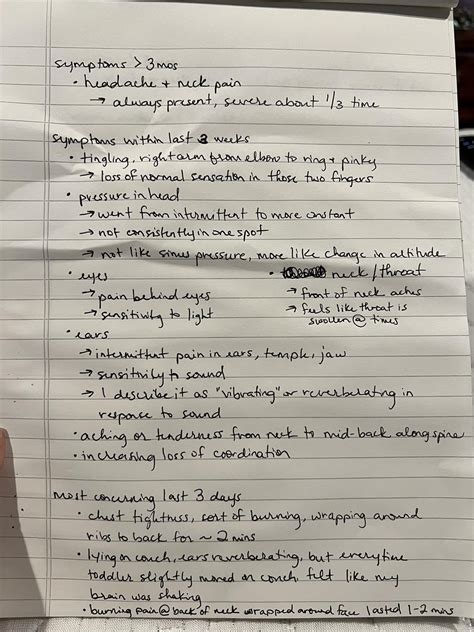 symptoms > 3 mos
• headache + neck pain
→ always present, severe about 1/3 time
symptoms within last 3 weeks
• tingling, right arm from elbow to ring + pinky
→ loss of normal sensation in those two fingers
• pressure in head
→ went from intermittent to more constant
→ not consistently in one spot
→ not like sinus pressure, more like change in altitude
• eyes
→ pain behind eyes
→ sensitivity to light
• neck/throat
→ front of neck aches
→ feels like throat is
swollen @ times
• ears
→ intermittent pain in ears, temple, jaw
→ sensitivity to sound
→ I describe it as "vibrating" or reverberating in
response to sound
• aching or tenderness from neck to mid-back along spine
• increasing loss of coordination
most concerning last 3 days
• chest tightness, sort of burning, wrapping around
ribs to back for ~ 2 mins
• lying on couch, ears reverberating, but everytime
toddler slightly moved on couch, felt like my
brain was shaking
• burning pain @ back of neck wrapped around face lasted 1-2 mins